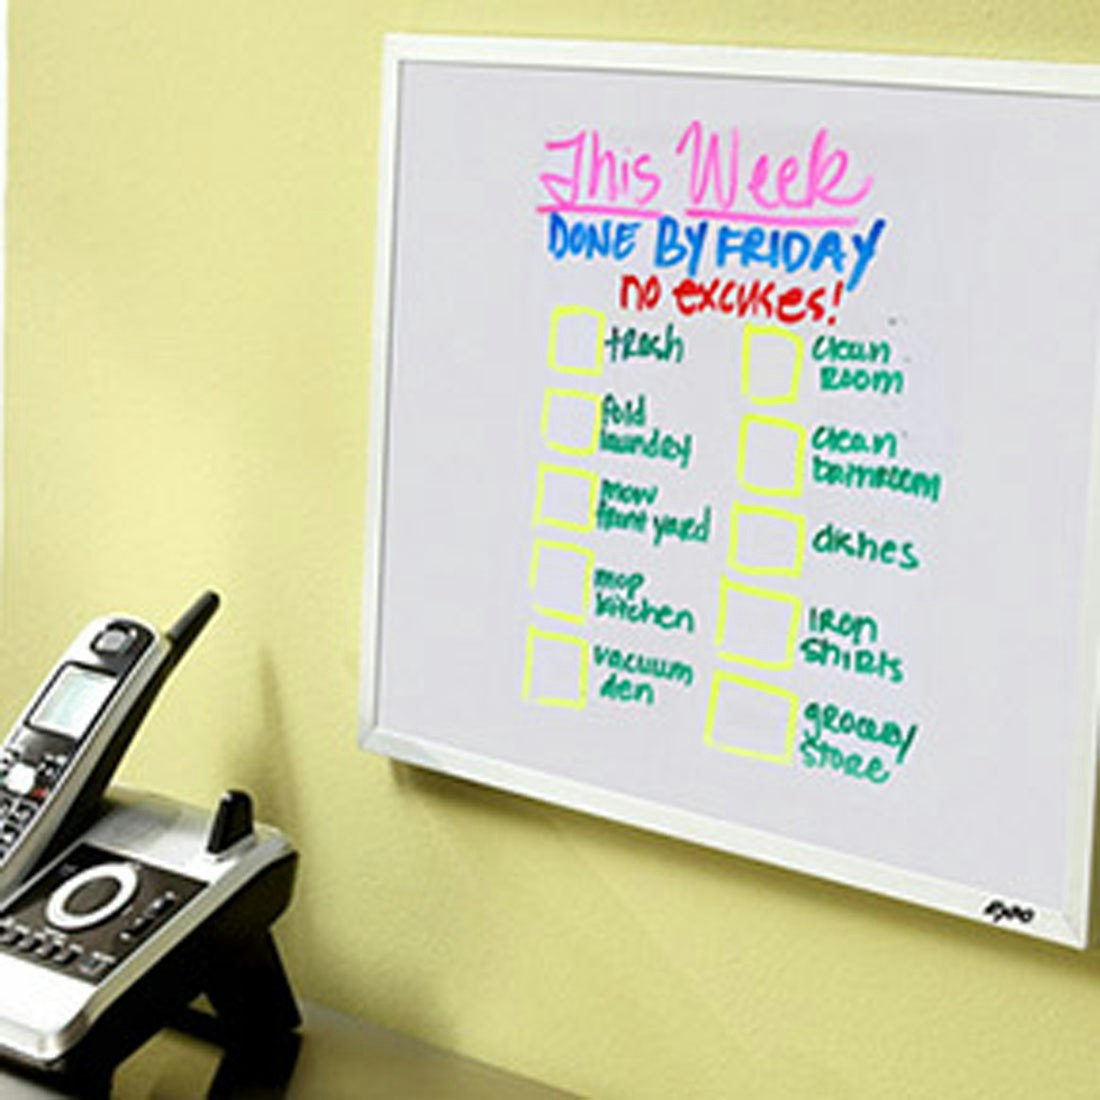 This Week
DONE BY FRIDAY
no excuses!
trash
fold
laundry
mow
front yard
mop
kitchen
vacuum
den
clean
Room
clean
bathroom
dishes
iron
shirts
grocery
store
EXPO